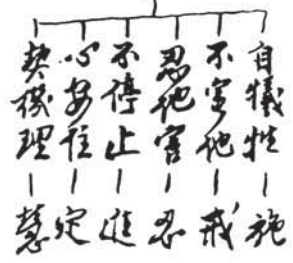 自犧牲 — 施
不害他 — 戒
忍他害 — 忍
不停止 — 進
心安住 — 定
契機理 — 慧